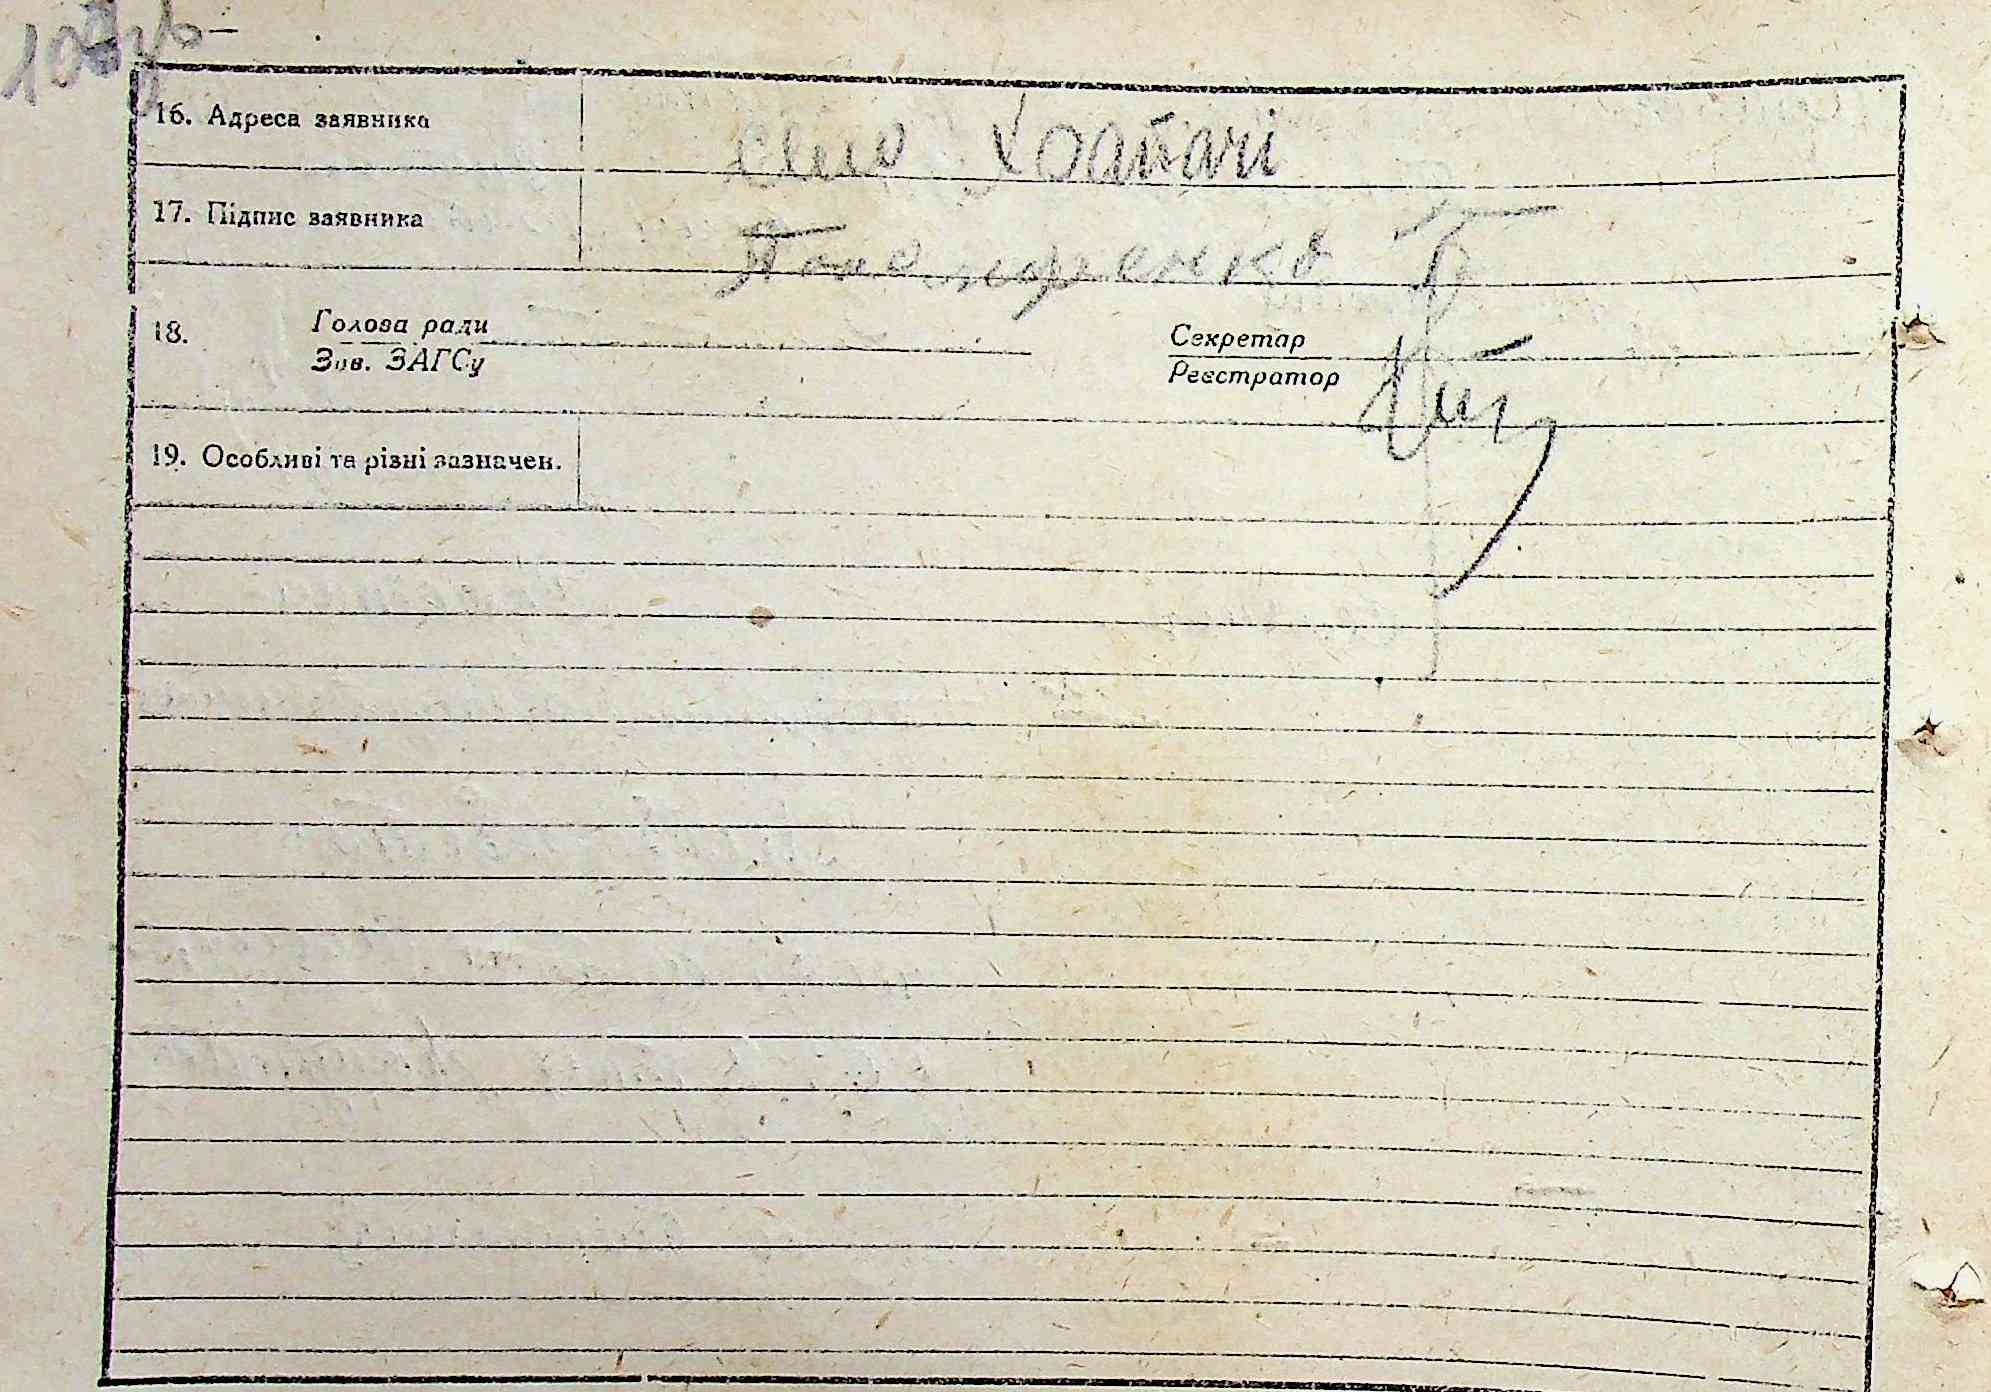 16. Адреса заявника село Храпачі
17. Підпис заявника
18. Голова ради Секретар
Зав. ЗАГСу Реєстратор
19. Особливі та різні зазначен.